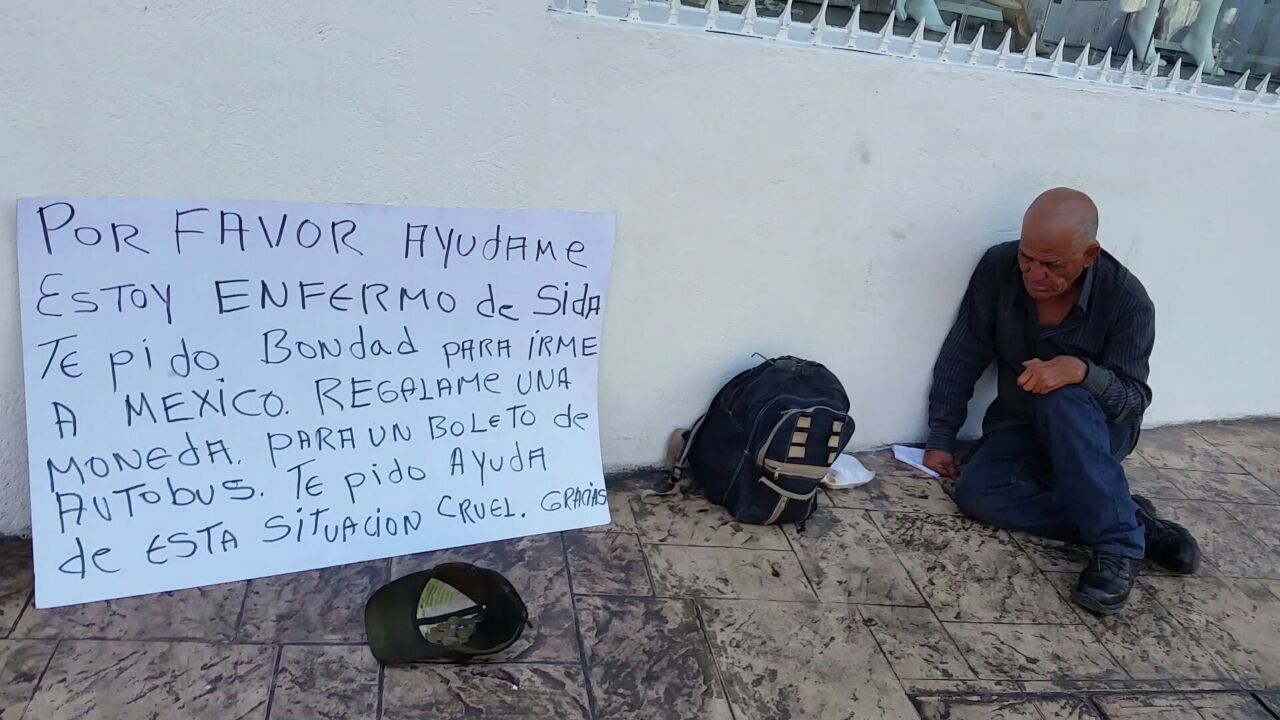 POR FAVOR AYUDAME
ESTOY ENFERMO de SidA
TE pido BONdAd PARA IRME
A MEXICO. REGALAME UNA
MONEdA. PARA UN BOLETO de
AUTOBUS. TE pido AYUDA
de ESTA SITUACION CRUEL. GRACIAS